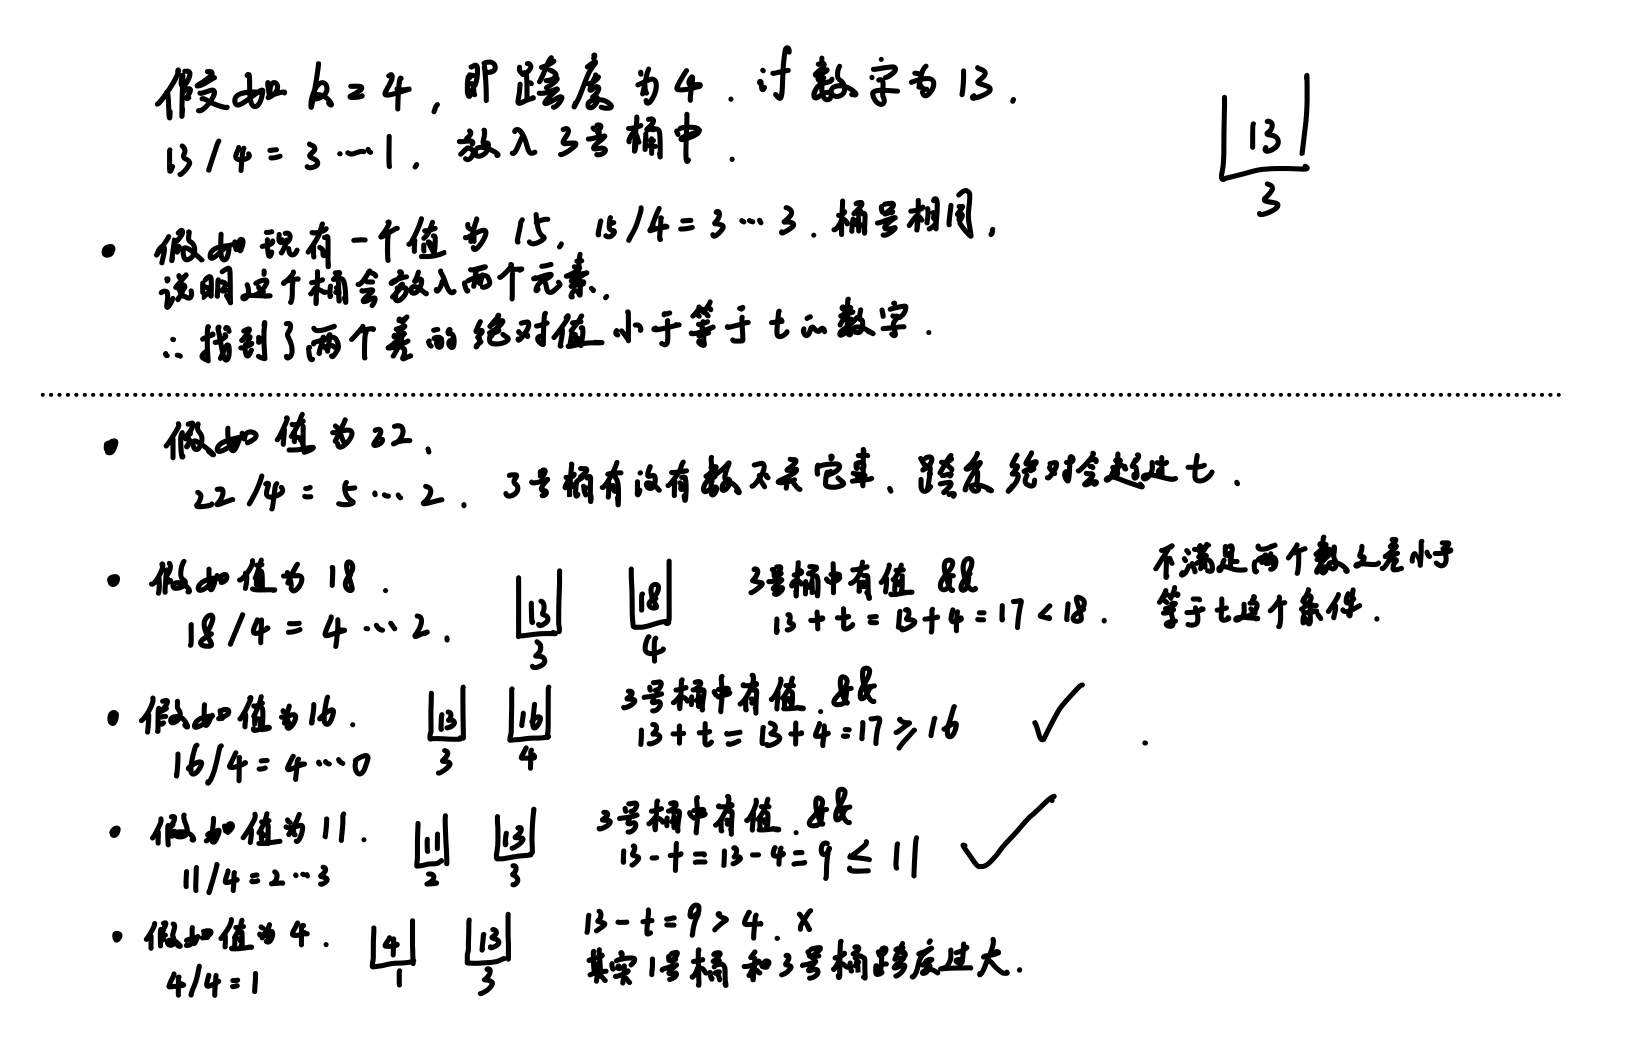 假如 k = 4, 即跨度为4. 计数字为13.
13 / 4 = 3 … 1. 放入3号桶中.
13
3
• 假如现有一个值为15, 15 / 4 = 3 … 3. 桶号相同,
说明这个桶会放入两个元素.
∴ 找到了两个差的绝对值小于等于t的数字.
• 假如值为22.
22 / 4 = 5 … 2. 3号桶有没有数不关它事. 跨度绝对会超过t.
• 假如值为18.
18 / 4 = 4 … 2.
13
3
18
4
3号桶中有值 &&
13 + t = 13 + 4 = 17 < 18.
不满足两个数之差小于
等于t这个条件.
• 假如值为16.
16 / 4 = 4 … 0
13
3
16
4
3号桶中有值. &&
13 + t = 13 + 4 = 17 ≥ 16 ✓
• 假如值为11.
11 / 4 = 2 … 3
11
2
13
3
3号桶中有值. &&
13 - t = 13 - 4 = 9 ≤ 11 ✓
• 假如值为4.
4 / 4 = 1
4
1
13
3
13 - t = 9 > 4. ×
其实1号桶和3号桶跨度过大.